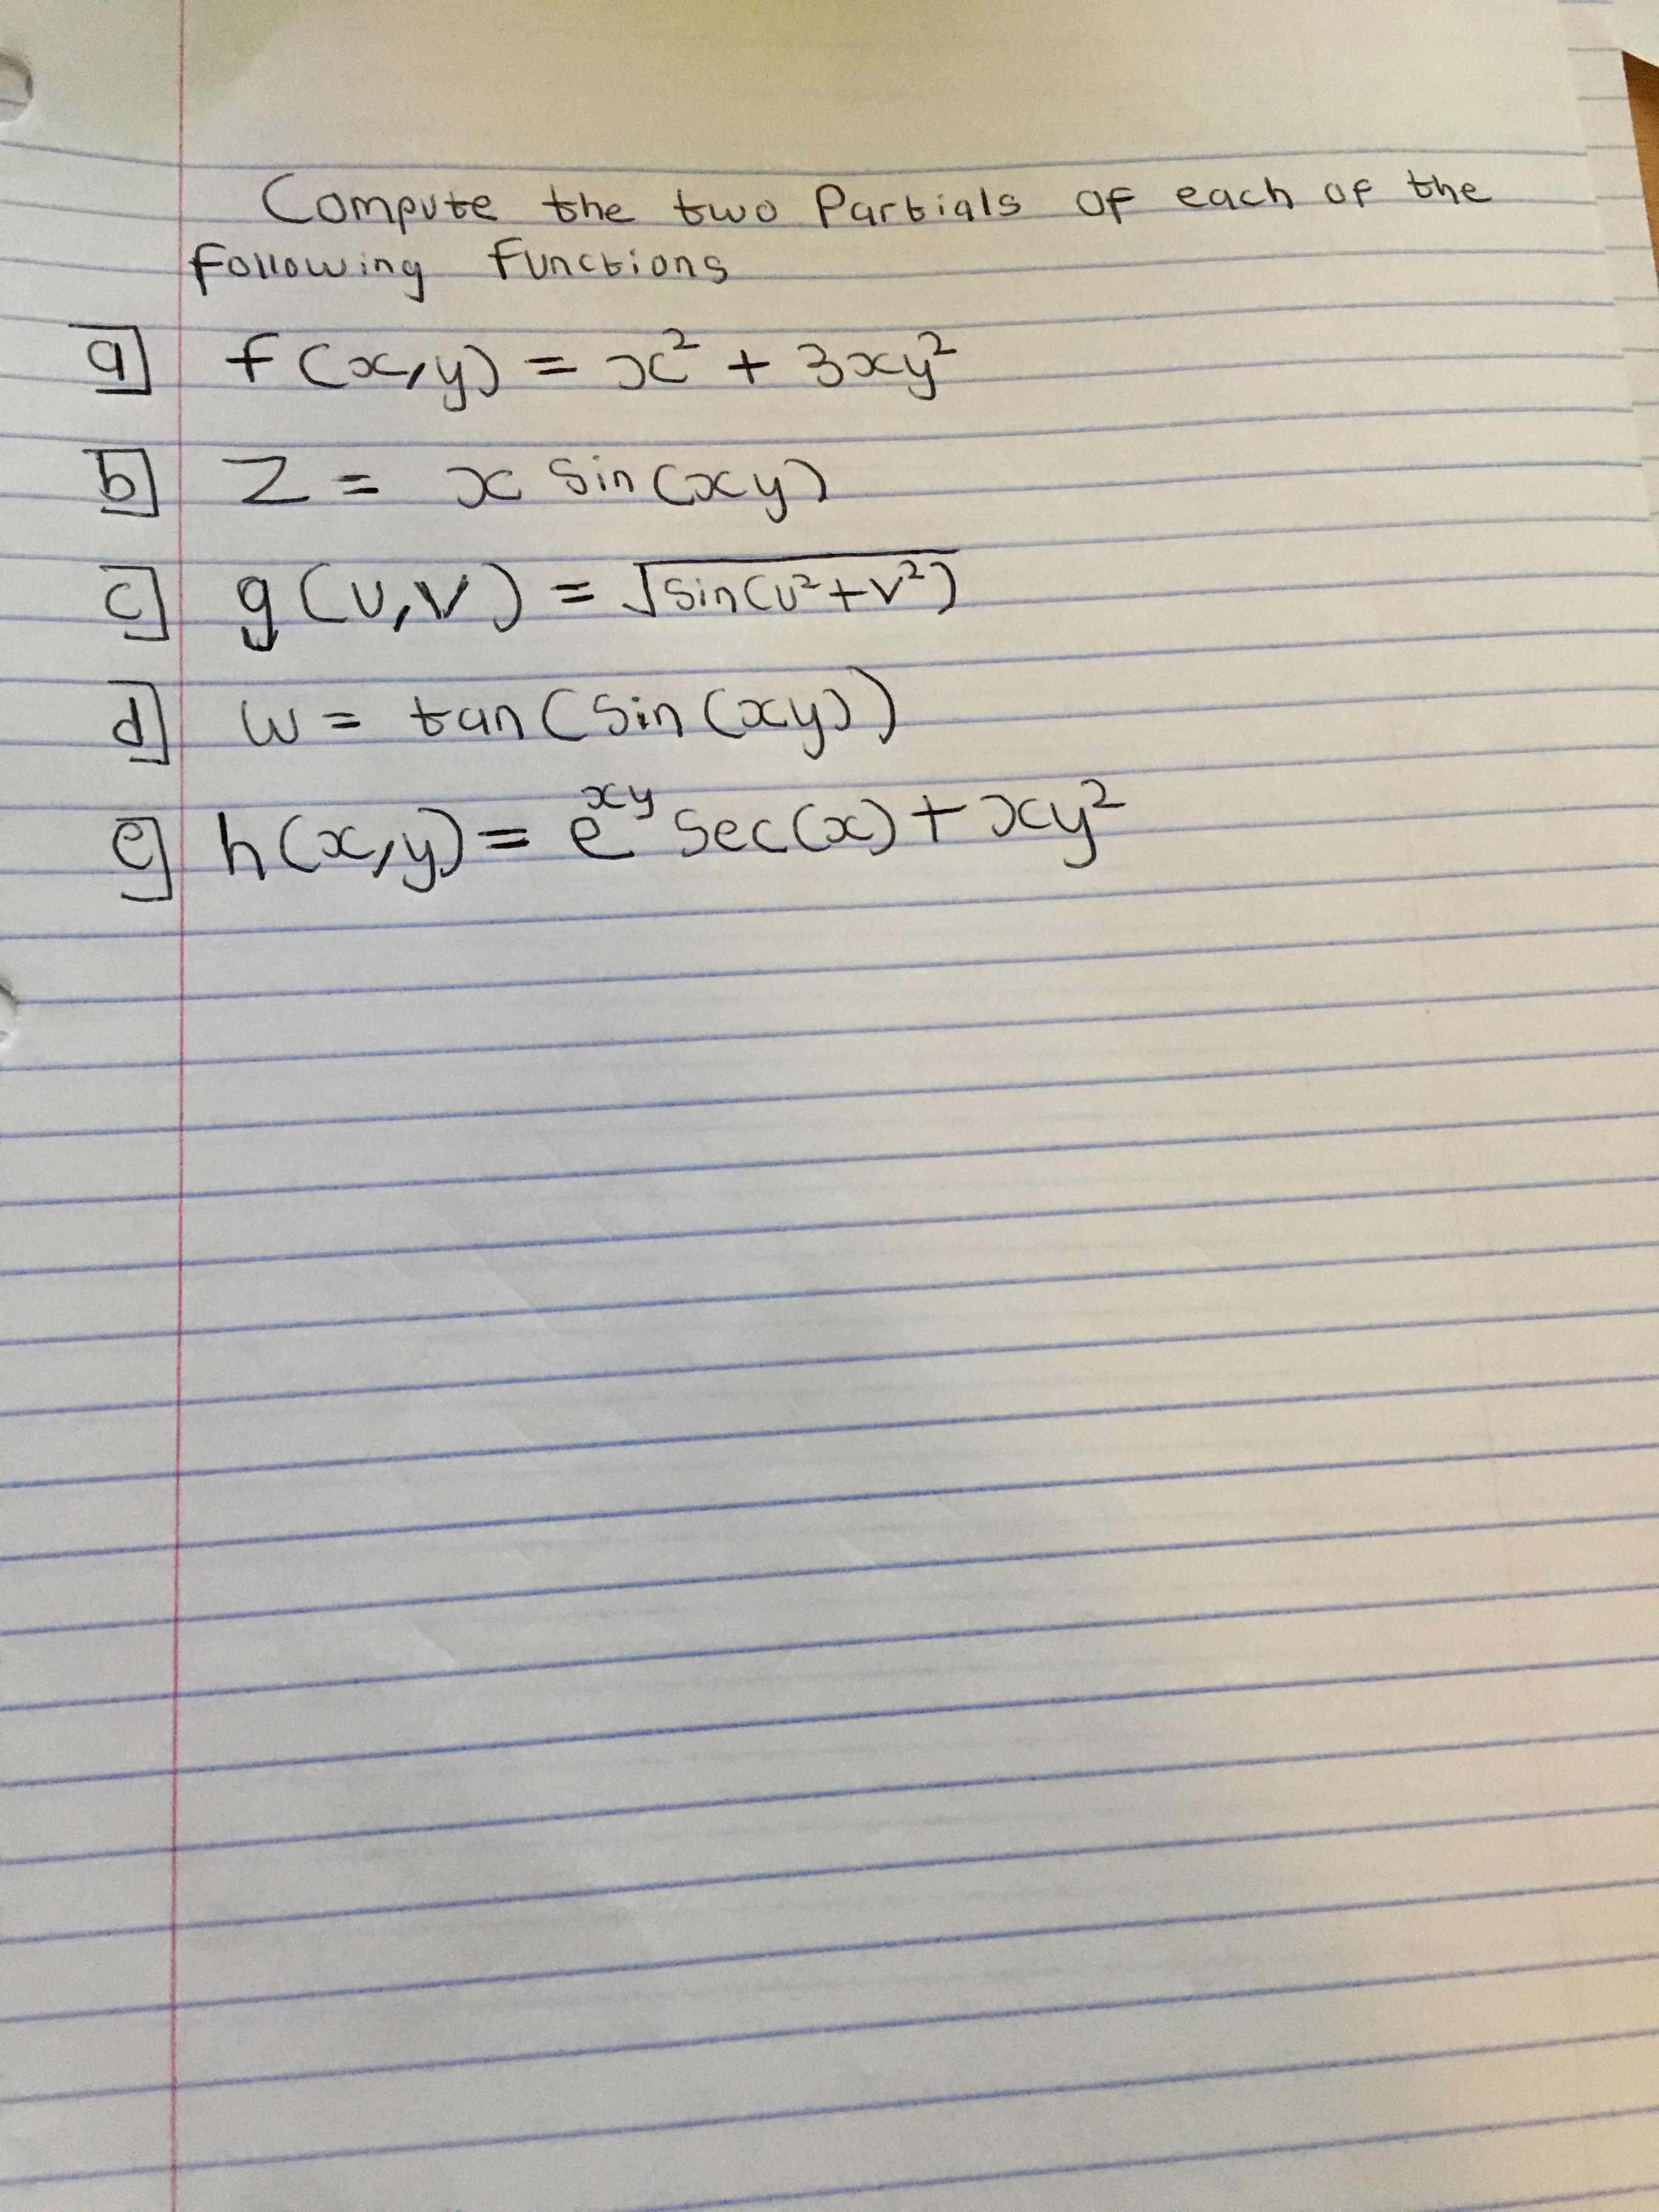 Compute the two Partials of each of the
following functions
a] f(x,y) = x² + 3xy²
b] z = x sin(xy)
c] g(u,v) = √sin(u²+v²)
d] w = tan(sin(xy))
e] h(x,y) = e^xy sec(x) + xy²